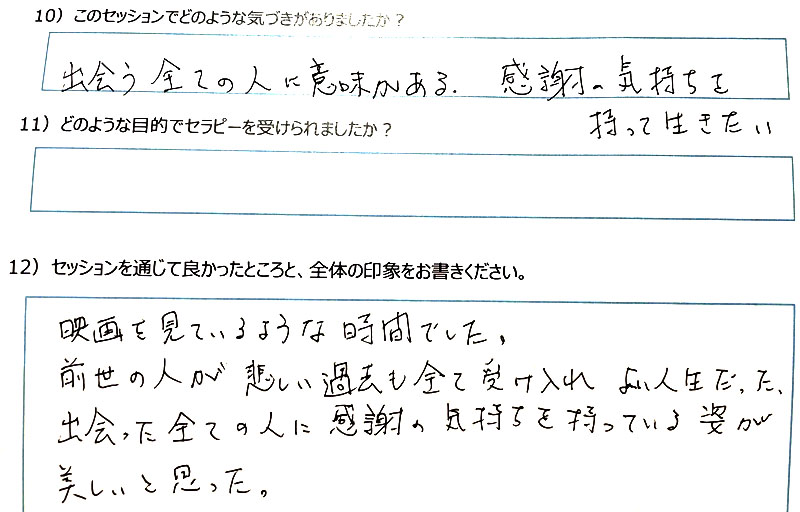 10）このセッションでどのような気づきがありましたか？
出会う全ての人に意味がある. 感謝の気持ちを
持って生きたい
11）どのような目的でセラピーを受けられましたか？
12）セッションを通じて良かったところと、全体の印象をお書きください。
映画を見ているような時間でした。
前世の人が悲しい過去も全て受け入れよい人生だった、
出会った全ての人に感謝の気持ちを持っている姿が
美しいと思った。